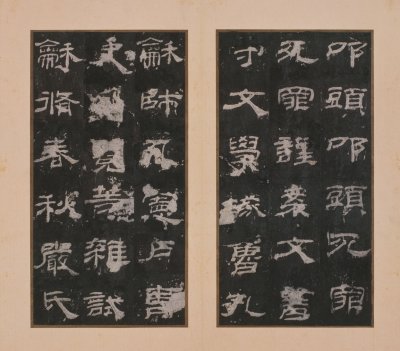 叩頭叩頭死罪
死罪謹案文書
守文學掾魯孔
龢師孔憲戶曹
史孔覽等雜試
龢脩春秋嚴氏